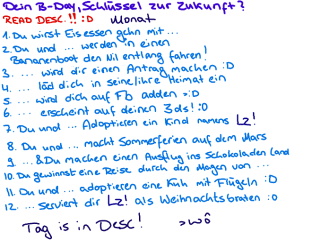 Dein B-Day, Schlüssel zur Zukunft?
READ DESC.!! :D Monat
1. Du wirst Eis essen gehn mit...
2. Du und ... werden in einen
Bananenboot den Nil entlang fahren!
3. ... wird dir einen Antrag machen :D
4. ... läd dich in seine/ihre Heimat ein
5. ... wird dich auf Fb adden >:D
6. ... erscheint auf deinen 3ds! :O
7. Du und ... Adoptieren ein Kind namens Lz!
8. Du und ... macht Sommerferien auf dem Mars
9. ... & Du machen einen Ausflug ins Schokoladen land
10. Du gewinnst eine Reise durch den Magen von ...
11. Du und ... adoptieren eine Kuh mit Flügeln :D
12. ... serviert dir Lz! als Weihnachtsbraten :O
Tag is in Desc! >wô